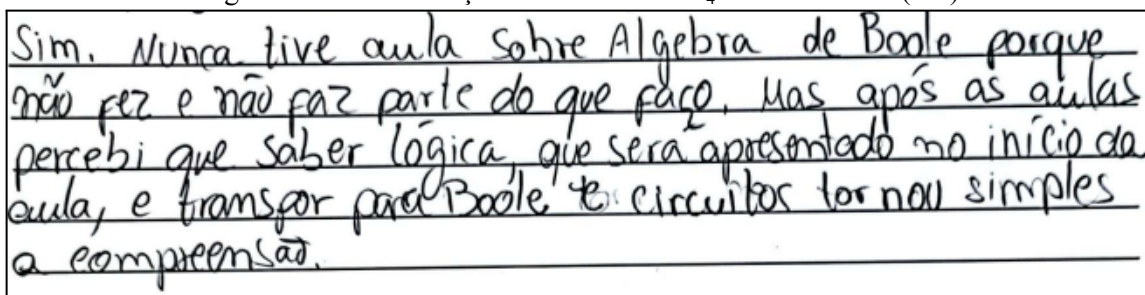 Sim. Nunca tive aula sobre Algebra de Boole porque
não fez e não faz parte do que faço. Mas após as aulas
percebi que saber lógica, que será apresentado no início da
aula, e transpor para Boole e circuitos tornou simples
a compreensão.